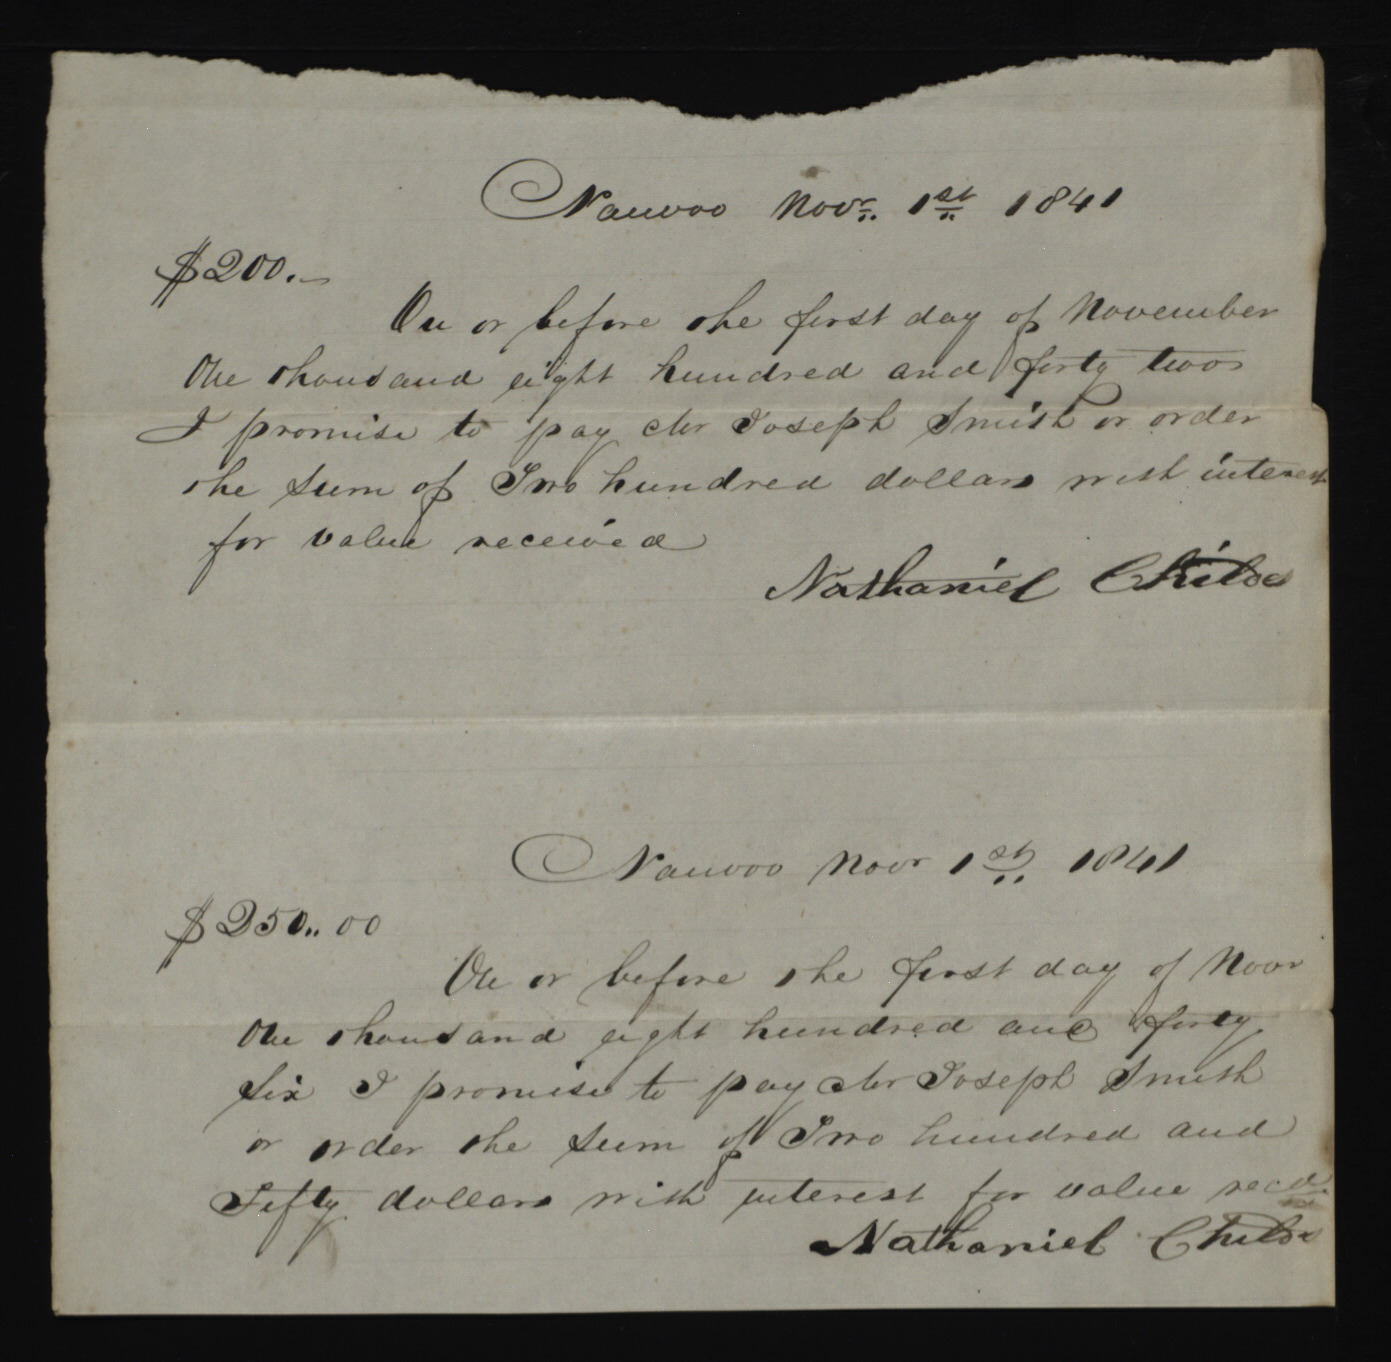 Nauvoo Novr. 1st 1841
$200.–
On or before the first day of November
One thousand eight hundred and forty two
I promise to pay Mr Joseph Smith or order
the sum of Two hundred dollars with interest
for value received
Nathaniel Childs
Nauvoo Novr 1st 1841
$250..00
On or before the first day of Novr
One thousand eight hundred and forty
six I promise to pay Mr Joseph Smith
or order the sum of Two hundred and
Fifty dollars with interest for value recd.
Nathaniel Childs